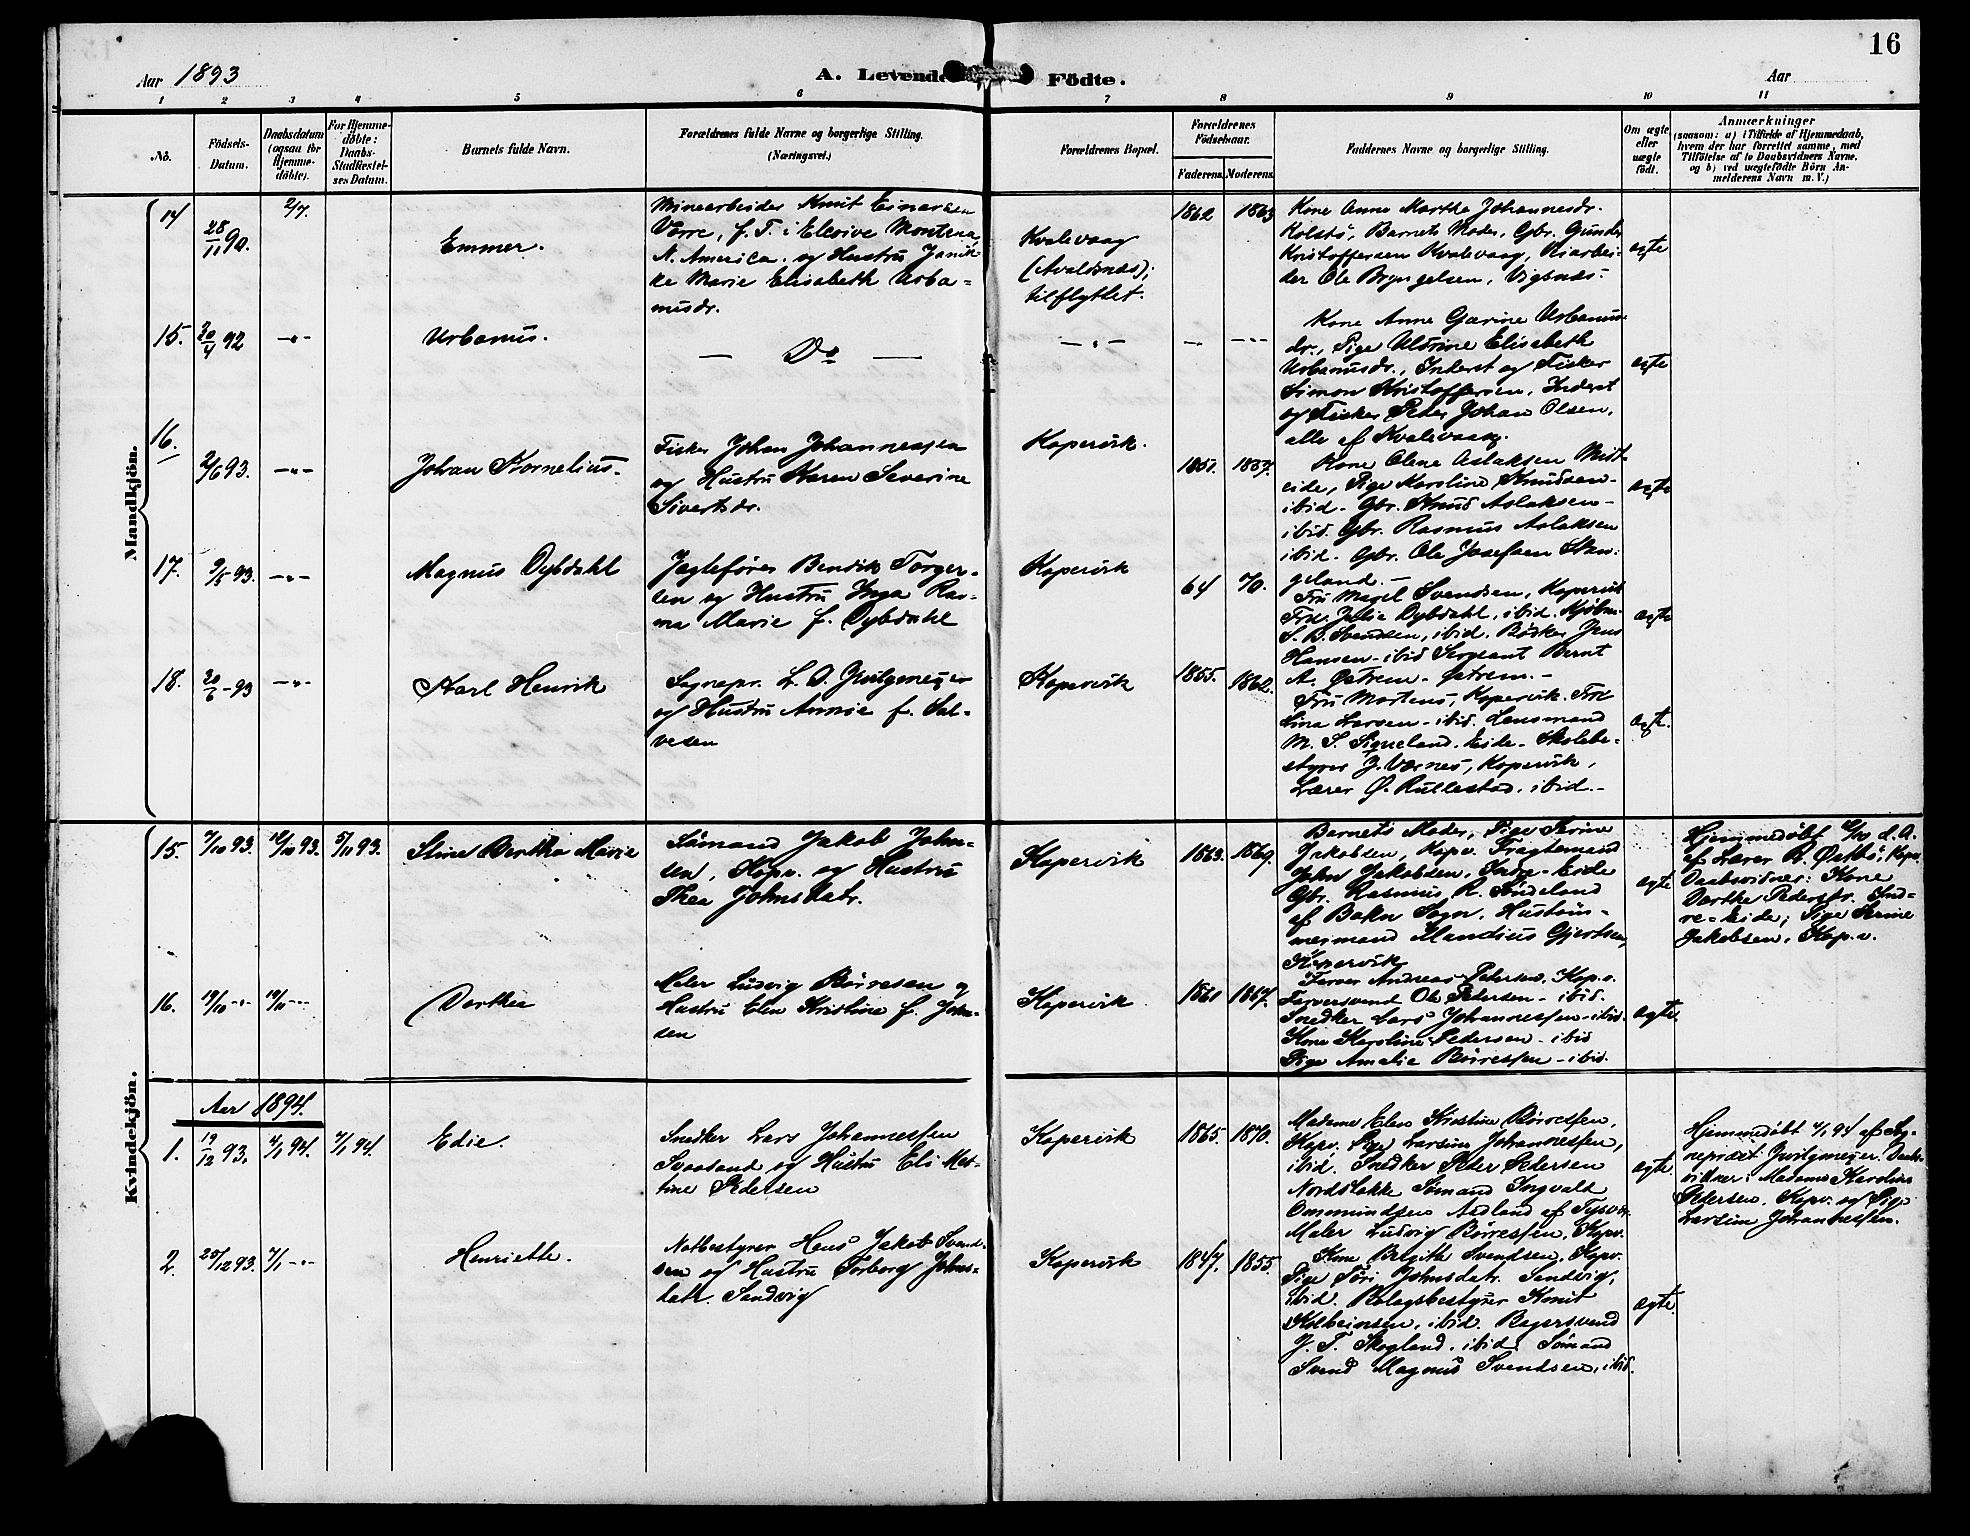 16
Aar 1893
A. Levende Födte.
Aar
1 2 3 4 5 6 7 8 9 10 11
No.
Födsels-
Datum.
Daabsdatum
(ogsaa for
Hjemme-
döbte).
For Hjemme-
döbte:
Daabs-
Stadfæstel-
ses Datum.
Barnets fulde Navn.
Forældrenes fulde Navne og borgerlige Stilling.
(Næringsvei.)
Forældrenes Bopæl.
Forældrenes
Födselsaar.
Faderens. Moderens.
Faddernes Navne og borgerlige Stilling.
Om ægte
eller
uægte
født.
Anmærkninger
(saasom: a) i Tilfælde af Hjemmedaab,
hvem der har forrettet samme, med
Tilföielse af to Daabsvidners Navne,
og b) ved uægtefödte Börn An-
melderens Navn m. V.)
Mandkjön.
14
28/11 90.
2/7.
Emmer.
Minearbeider Knut Einarsen
Vorre, f. T. i Montena
N. America. og Hustru Janik-
ke Marie Elisabeth Urba-
nusdr.
Kvalevaag
(Avaldsnæs);
tilflyttet.
1862 1863
Kone Anne Martha Johannesdr.
Kolstö, Barnets Moder, Gbr. Gunder
Kristoffersen Kvalevaag,
der Ole Bryngelsen, Vigsnæs.
ægte
15.
20/4 92
-"-
Urbanus.
— Do —
-"-
Kone Anne Gurine Urbanus-
dr., Pige Elisabeth
Urbanusdr., Inderst og Fisker
Simon Kristoffersen, Inderst
og Fisker Peder Johan Olsen,
alle af Kvalevaag.
ægte
16.
2/6 93.
-"-
Johan Kornelius.
Fisker Johan Johannessen
og Hustru Karen Severine
Sivertsdr.
Kopervik.
1851. 1857.
Kone Olene Aslaksen
eide, Pige Karoline Knudsen-
ibid- Gbr. Knud Aslaksen-
ibid. Gbr. Rasmus Aslaksen
ibid- Gbr. Ole Josefsen Stan-
geland.-
ægte
17.
9/5 93.
-"-
Magnus Dybdahl
Jagtefører Bendik Torger-
sen og Hustru Inga Ras-
ma Marie f. Dybdahl
Kopervik
64 70.
Fru Magel Svendsen, Kopervik
Frk. Julie Dybdahl, ibid. Kjöbm.
S. B. Svendsen, ibid. Bødker Jens
Hansen-ibid Sergeant Bernt
A. Østrem-Østrem.-
ægte
18.
20/6-93
-"-
Karl Henrik
Sognepr. L. O. Zwilgmeyer
og Hustru Annie f. Sal-
vesen
Kopervik
1855. 1862.
Fru Martens, Kopervik. Frk
Lina Larsen-ibid. Lensmand
M. S. Eide- Skolebe-
styrer J. Værnes, Kopervik,
Lærer Ø. Rullestad, ibid.-
ægte.
Kvindekjön.
15.
7/10 93.
10/10 93.
5/11 93.
Stine Bertha Marie
Sømand Jakob John-
sen, Kopv. og Hustru
Thea Johnsdatr.
Kopervik
1863. 1869.
Barnets Moder, Pige Serine
Jakobsen, Kopv. Fragtemand
John Jakobsen, Indre-Eide
Gbr. Rasmus R. Söndeland
af Bokn Sogn, Hustöm-
mermand Mandius Gjertsen,
Kopervik
ægte
Hjemmedøbt 10/10 d. A.
af Lærer R. Østbö, Kopv.
Daabsvidner: Kone
Dorthe Pedersdr. Ind-
re-Eide; Pige Serine
Jakobsen, Kopv.
16.
19/10 -"-
19/11 -"-
Dorthea
Maler Ludvig Börresen og
Hustru Elen Kristine f. John-
sen
Kopervik
1861 1867.
Farver Andreas Pedersen, Kopv.
Farversvend Ole Pedersen-ibid.
Snedker Lars Johannessen-ibid.
Kone Karoline Pedersen-ibid
Pige Amalie Börressen-ibid.
ægte.
Aar 1894.
1.
19/12 93.
4/1 94.
7/1 94.
Edie.
Snedker Lars Johannessen
Svaasand og Hustru Eli Mar-
tine Pedersen
Kopervik
1865. 1870.
Madame Elen Kristine Börressen,
Kopv. Pige Larsine Johannessen,
ibid. Snedker Peder Pedersen
Nordstokke Sømand Ingvald
Ommundsen Aadland af Tysvær
Maler Ludvig Börressen, Kopv.
ægte
Hjemmedøbt 4/1 94 af Sog-
nepræst Zwilgmeyer. Daabs-
vidner: Madame Karoline
Pedersen, Kopv. og Pige
Larsine Johannessen.
2.
20/12 93.
7/1 -"-
Henriette.
Notbestyrer Hans Jakob Svend-
sen og Hustru Torborg Johns-
datr. Sandvig
Kopervik
1847. 1855.
Kone Birgithe Svendsen, Kopv.
Pige Siri Johnsdatr. Sandvig,
ibid. Bolagsbestyrer Knut
Kolbeinsen, ibid. Bagersvend
J. T. Skogland. ibid. Sømand
Svend Magnus Svendsen, ibid.
ægte.